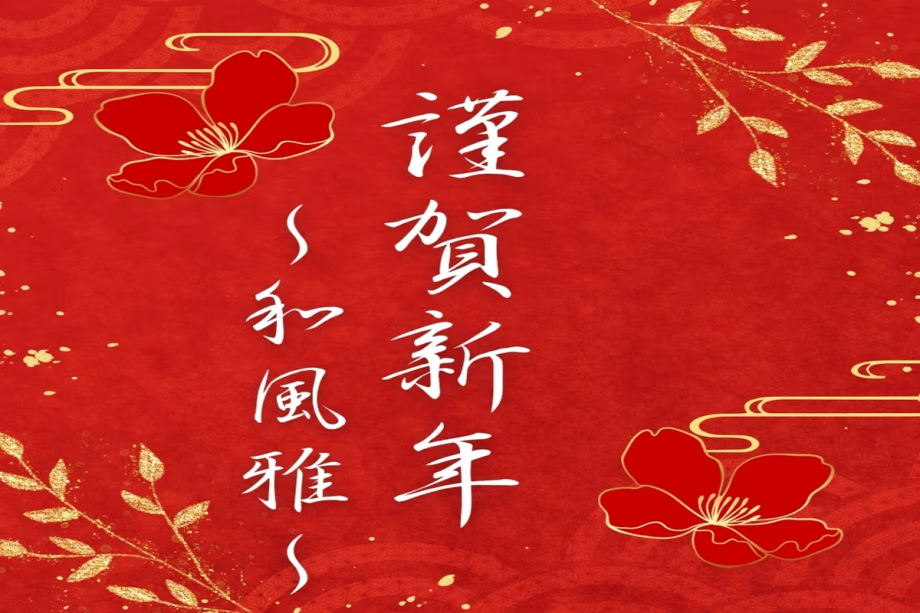 謹賀新年
〜和風雅〜